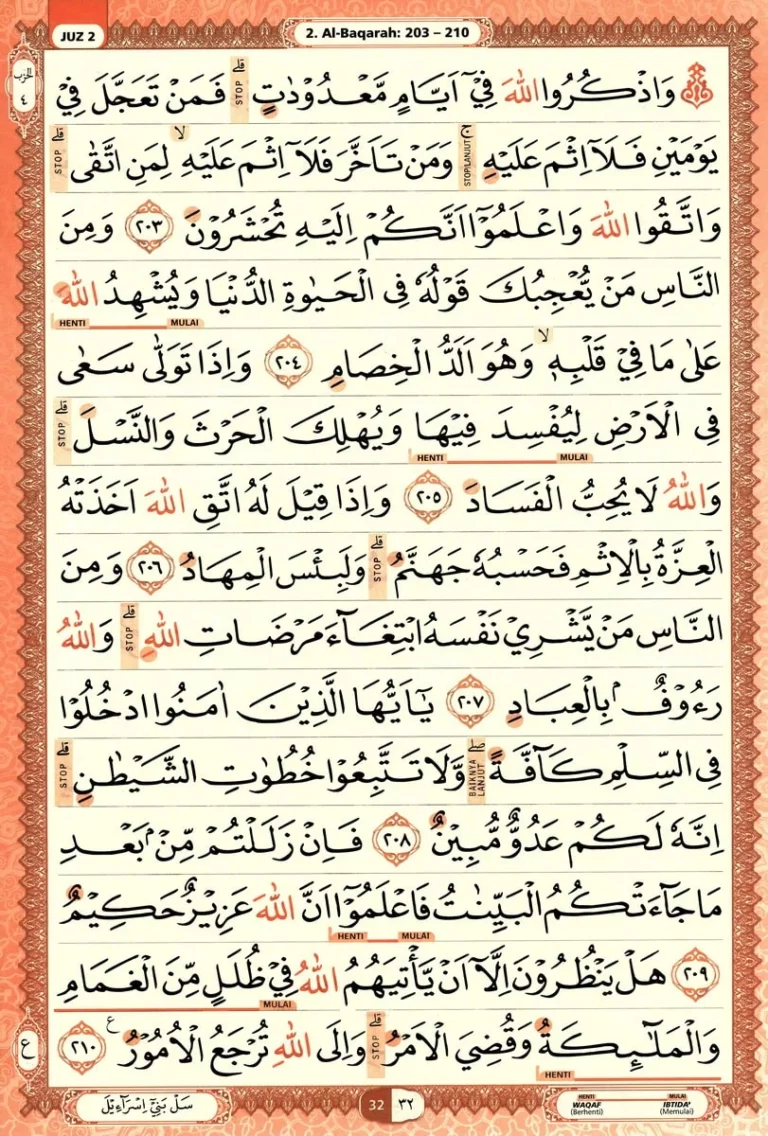 JUZ 2
2. Al-Baqarah: 203 – 210
الحزب
٤
۞ وَاذْكُرُوا اللّٰهَ فِيْٓ اَيَّامٍ مَّعْدُوْدٰتٍ ۗ STOP فَمَنْ تَعَجَّلَ فِيْ
يَوْمَيْنِ فَلَآ اِثْمَ عَلَيْهِ ۚ STOP/LANJUT وَمَنْ تَاَخَّرَ فَلَآ اِثْمَ عَلَيْهِ ۙ لِمَنِ اتَّقٰى ۗ STOP
وَاتَّقُوا اللّٰهَ وَاعْلَمُوْٓا اَنَّكُمْ اِلَيْهِ تُحْشَرُوْنَ ٢٠٣ وَمِنَ
النَّاسِ مَنْ يُّعْجِبُكَ قَوْلُهٗ فِى الْحَيٰوةِ الدُّنْيَا وَيُشْهِدُ اللّٰهَ
HENTI MULAI
عَلٰى مَا فِيْ قَلْبِهٖ ۙ وَهُوَ اَلَدُّ الْخِصَامِ ٢٠٤ وَاِذَا تَوَلّٰى سَعٰى
فِى الْاَرْضِ لِيُفْسِدَ فِيْهَا وَيُهْلِكَ الْحَرْثَ وَالنَّسْلَ ۗ STOP
HENTI MULAI
وَاللّٰهُ لَا يُحِبُّ الْفَسَادَ ٢٠٥ وَاِذَا قِيْلَ لَهُ اتَّقِ اللّٰهَ اَخَذَتْهُ
الْعِزَّةُ بِالْاِثْمِ فَحَسْبُهٗ جَهَنَّمُ ۗ STOP وَلَبِئْسَ الْمِهَادُ ٢٠٦ وَمِنَ
النَّاسِ مَنْ يَّشْرِيْ نَفْسَهُ ابْتِغَاۤءَ مَرْضَاتِ اللّٰهِ ۗ STOP وَاللّٰهُ
رَءُوْفٌۢ بِالْعِبَادِ ٢٠٧ يٰٓاَيُّهَا الَّذِيْنَ اٰمَنُوا ادْخُلُوْا
فِى السِّلْمِ كَاۤفَّةً ۖ BAIKNYA LANJUT وَّلَا تَتَّبِعُوْا خُطُوٰتِ الشَّيْطٰنِ ۗ STOP
اِنَّهٗ لَكُمْ عَدُوٌّ مُّبِيْنٌ ٢٠٨ فَاِنْ زَلَلْتُمْ مِّنْۢ بَعْدِ
مَا جَاۤءَتْكُمُ الْبَيِّنٰتُ فَاعْلَمُوْٓا اَنَّ اللّٰهَ عَزِيْزٌ حَكِيْمٌ
HENTI MULAI
٢٠٩ هَلْ يَنْظُرُوْنَ اِلَّآ اَنْ يَّأْتِيَهُمُ اللّٰهُ فِيْ ظُلَلٍ مِّنَ الْغَمَامِ
MULAI
وَالْمَلٰۤىِٕكَةُ وَقُضِيَ الْاَمْرُ ۗ STOP وَاِلَى اللّٰهِ تُرْجَعُ الْاُمُوْرُ ࣖ ٢١٠
HENTI
ع
سَلْ بَنِيْٓ اِسْرَاۤءِيْلَ
32 ٣٢
HENTI MULAI
WAQAF IBTIDA'
(Berhenti) (Memulai)